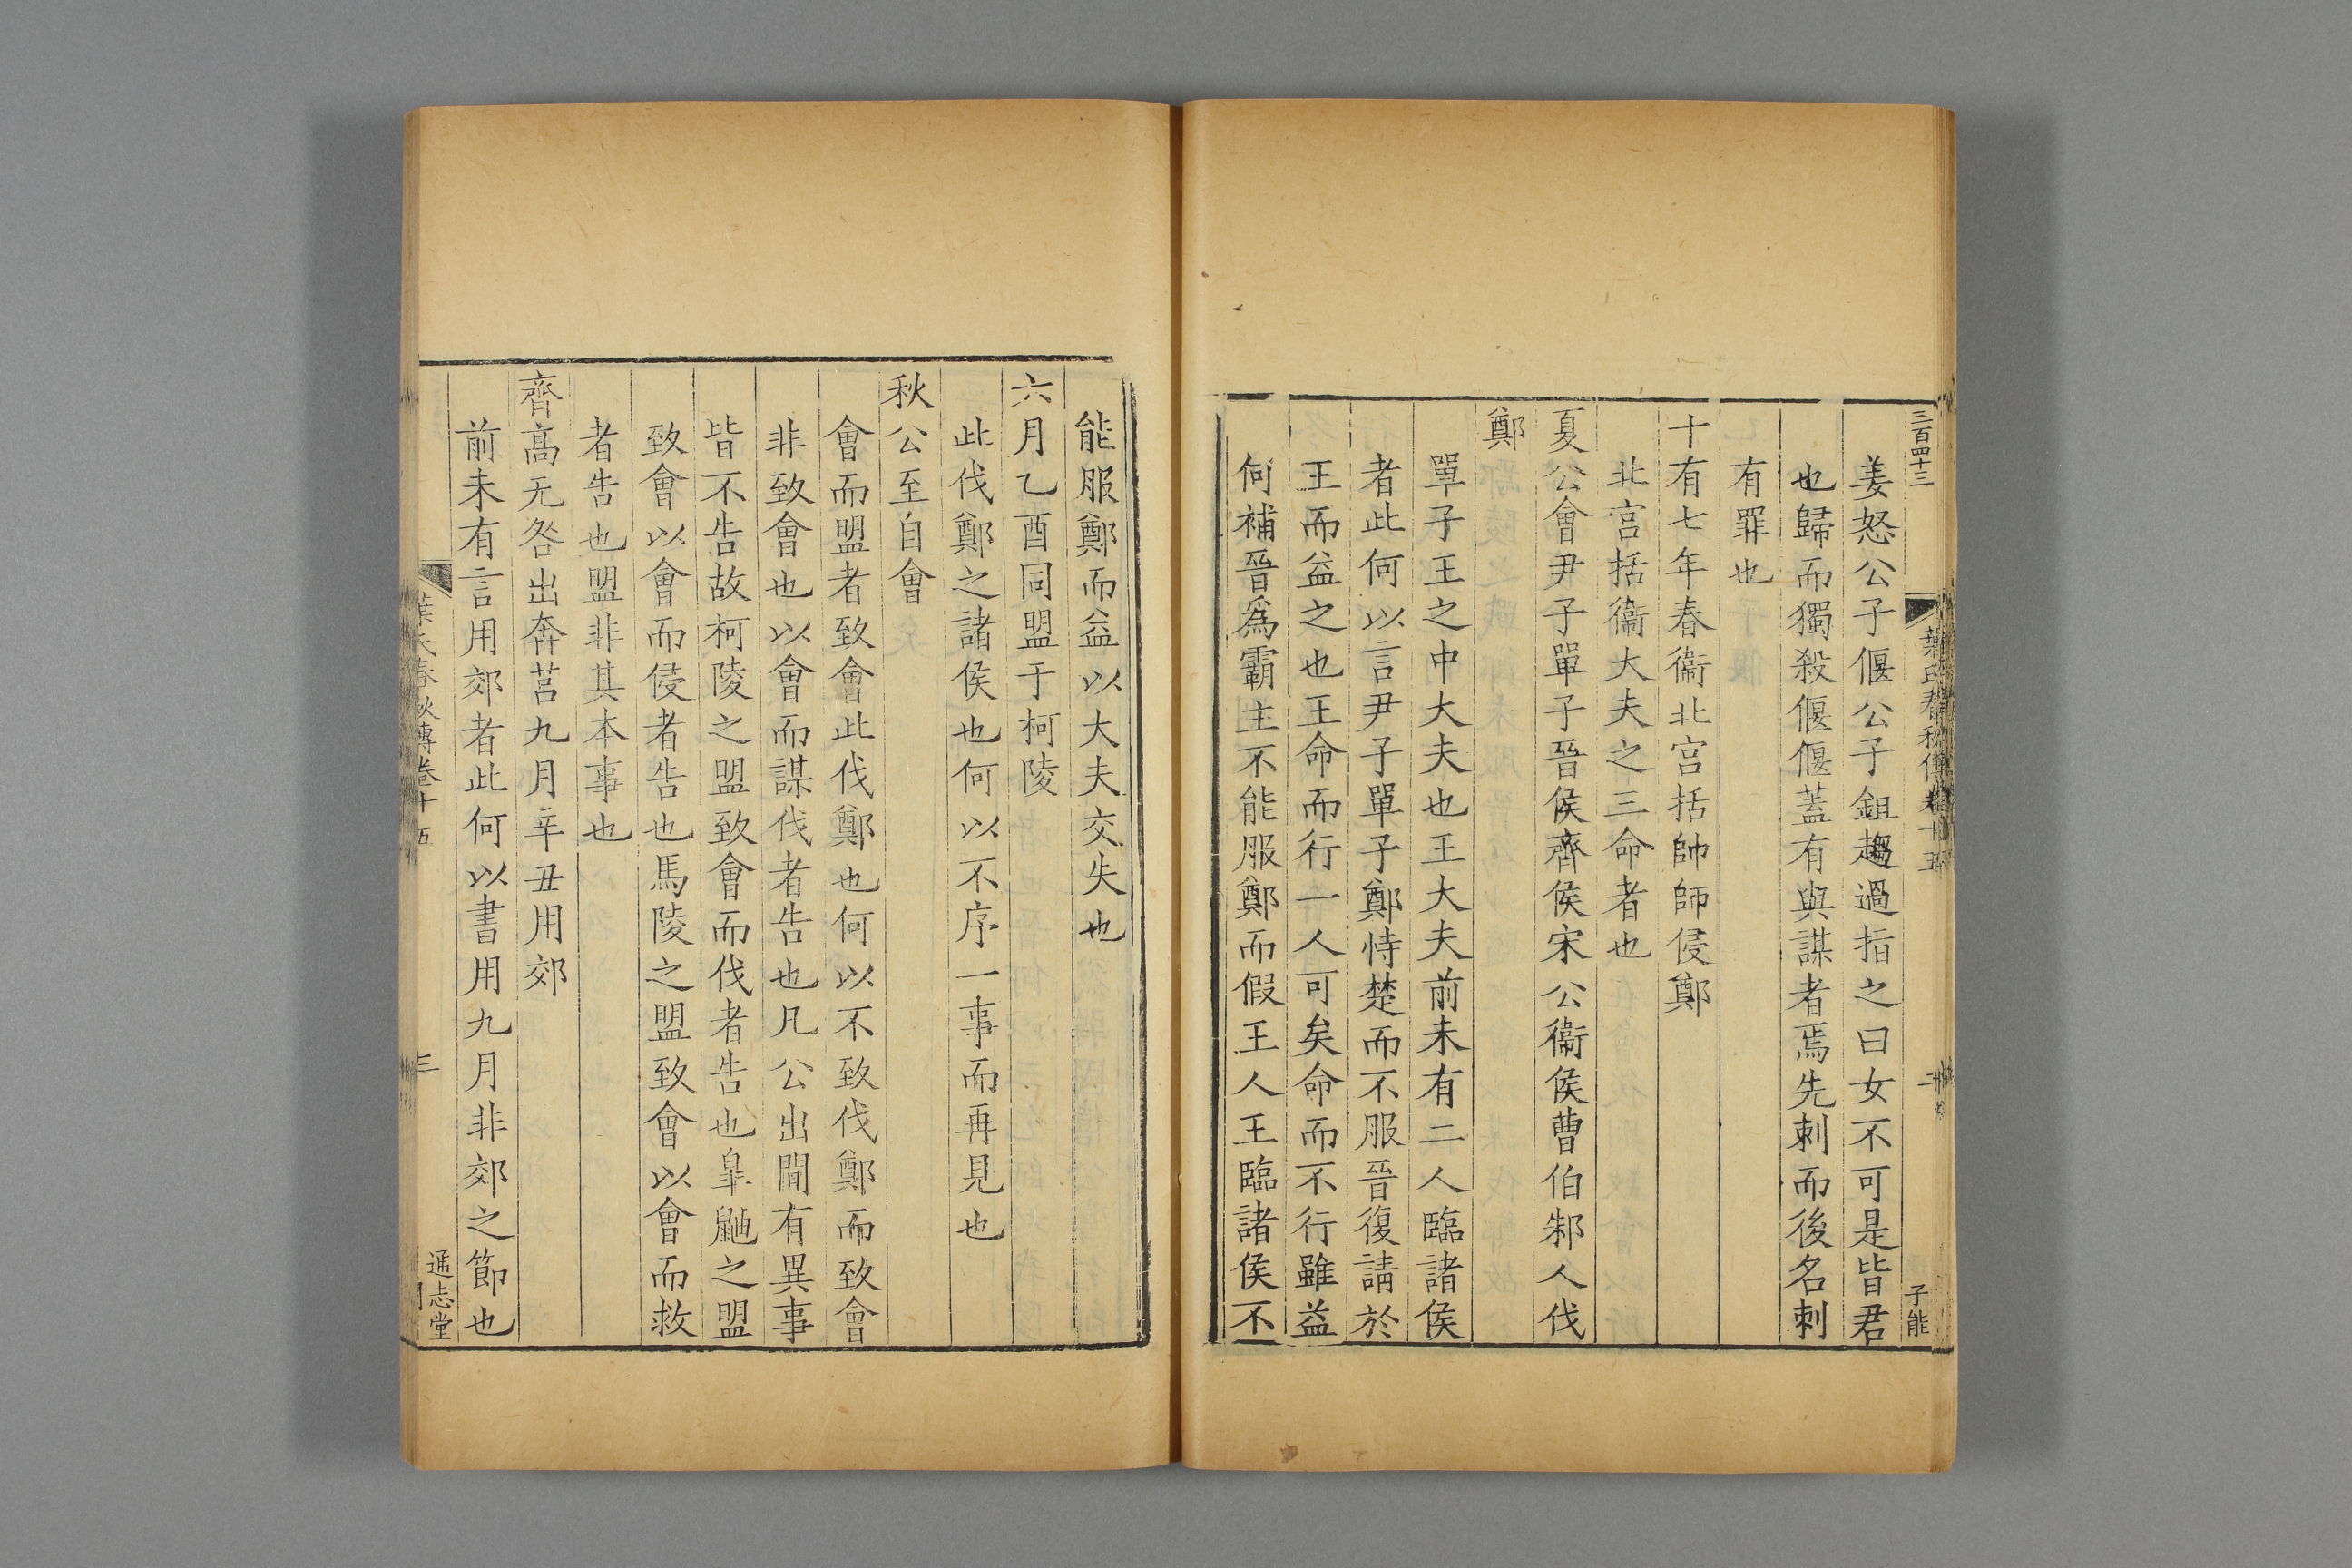 三百四十三
葉氏春秋傳卷十五
二
子能
姜怒公子偃公子鉏趨過指之曰女不可是皆君
也歸而獨殺偃偃蓋有與謀者焉先刺而後名刺
有罪也
十有七年春衞北宮括帥師侵鄭
北宮括衞大夫之三命者也
夏公會尹子單子晉侯齊侯宋公衞侯曹伯邾人伐
鄭
單子王之中大夫也王大夫前未有二人臨諸侯
者此何以言尹子單子鄭恃楚而不服晉復請於
王而益之也王命而行一人可矣命而不行雖益
何補晉爲霸主不能服鄭而假王人王臨諸侯不
能服鄭而益以大夫交失也
六月乙酉同盟于柯陵
此伐鄭之諸侯也何以不序一事而再見也
秋公至自會
會而盟者致會此伐鄭也何以不致伐鄭而致會
非致會也以會而謀伐者告也凡公出間有異事
皆不告故柯陵之盟致會而伐者告也臯鼬之盟
致會以會而侵者告也馬陵之盟致會以會而救
者告也盟非其本事也
齊高无咎出奔莒九月辛丑用郊
前未有言用郊者此何以書用九月非郊之節也
葉氏春秋傳卷十五
三
通志堂